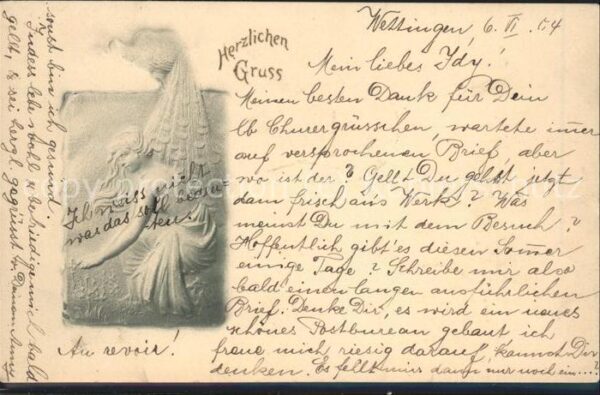 Herzlichen
Gruss
Wettingen, 6. VI. 04
Mein liebes Idy!
Meinen besten Dank für Dein
lb Churergrüsschen, wartete im̄er
auf versprochenen Brief, aber
wo ist der? Gell Du gehst jetzt
dann frisch ans Werk? Was
meinst Du mit dem Besuch?
Hoffentlich gibt es diesen Som̄er
einige Tage? Schreibe mir also
bald einen langen ausführlichen
Brief. Denke Dir, es wird ein neues
schönes Postbureau gebaut ich
freue mich riesig darauf, kannst Dir
denken. Es fehlt mir dann nur noch ein...?
Au revoir!
Ich weiss nicht
was das soll bedeu-
ten!
sonst bin ich gesund.
Indess lebe wohl & befriedige mich bald
gellt, & sei herzl. gegrüsst v. Deinem Anny